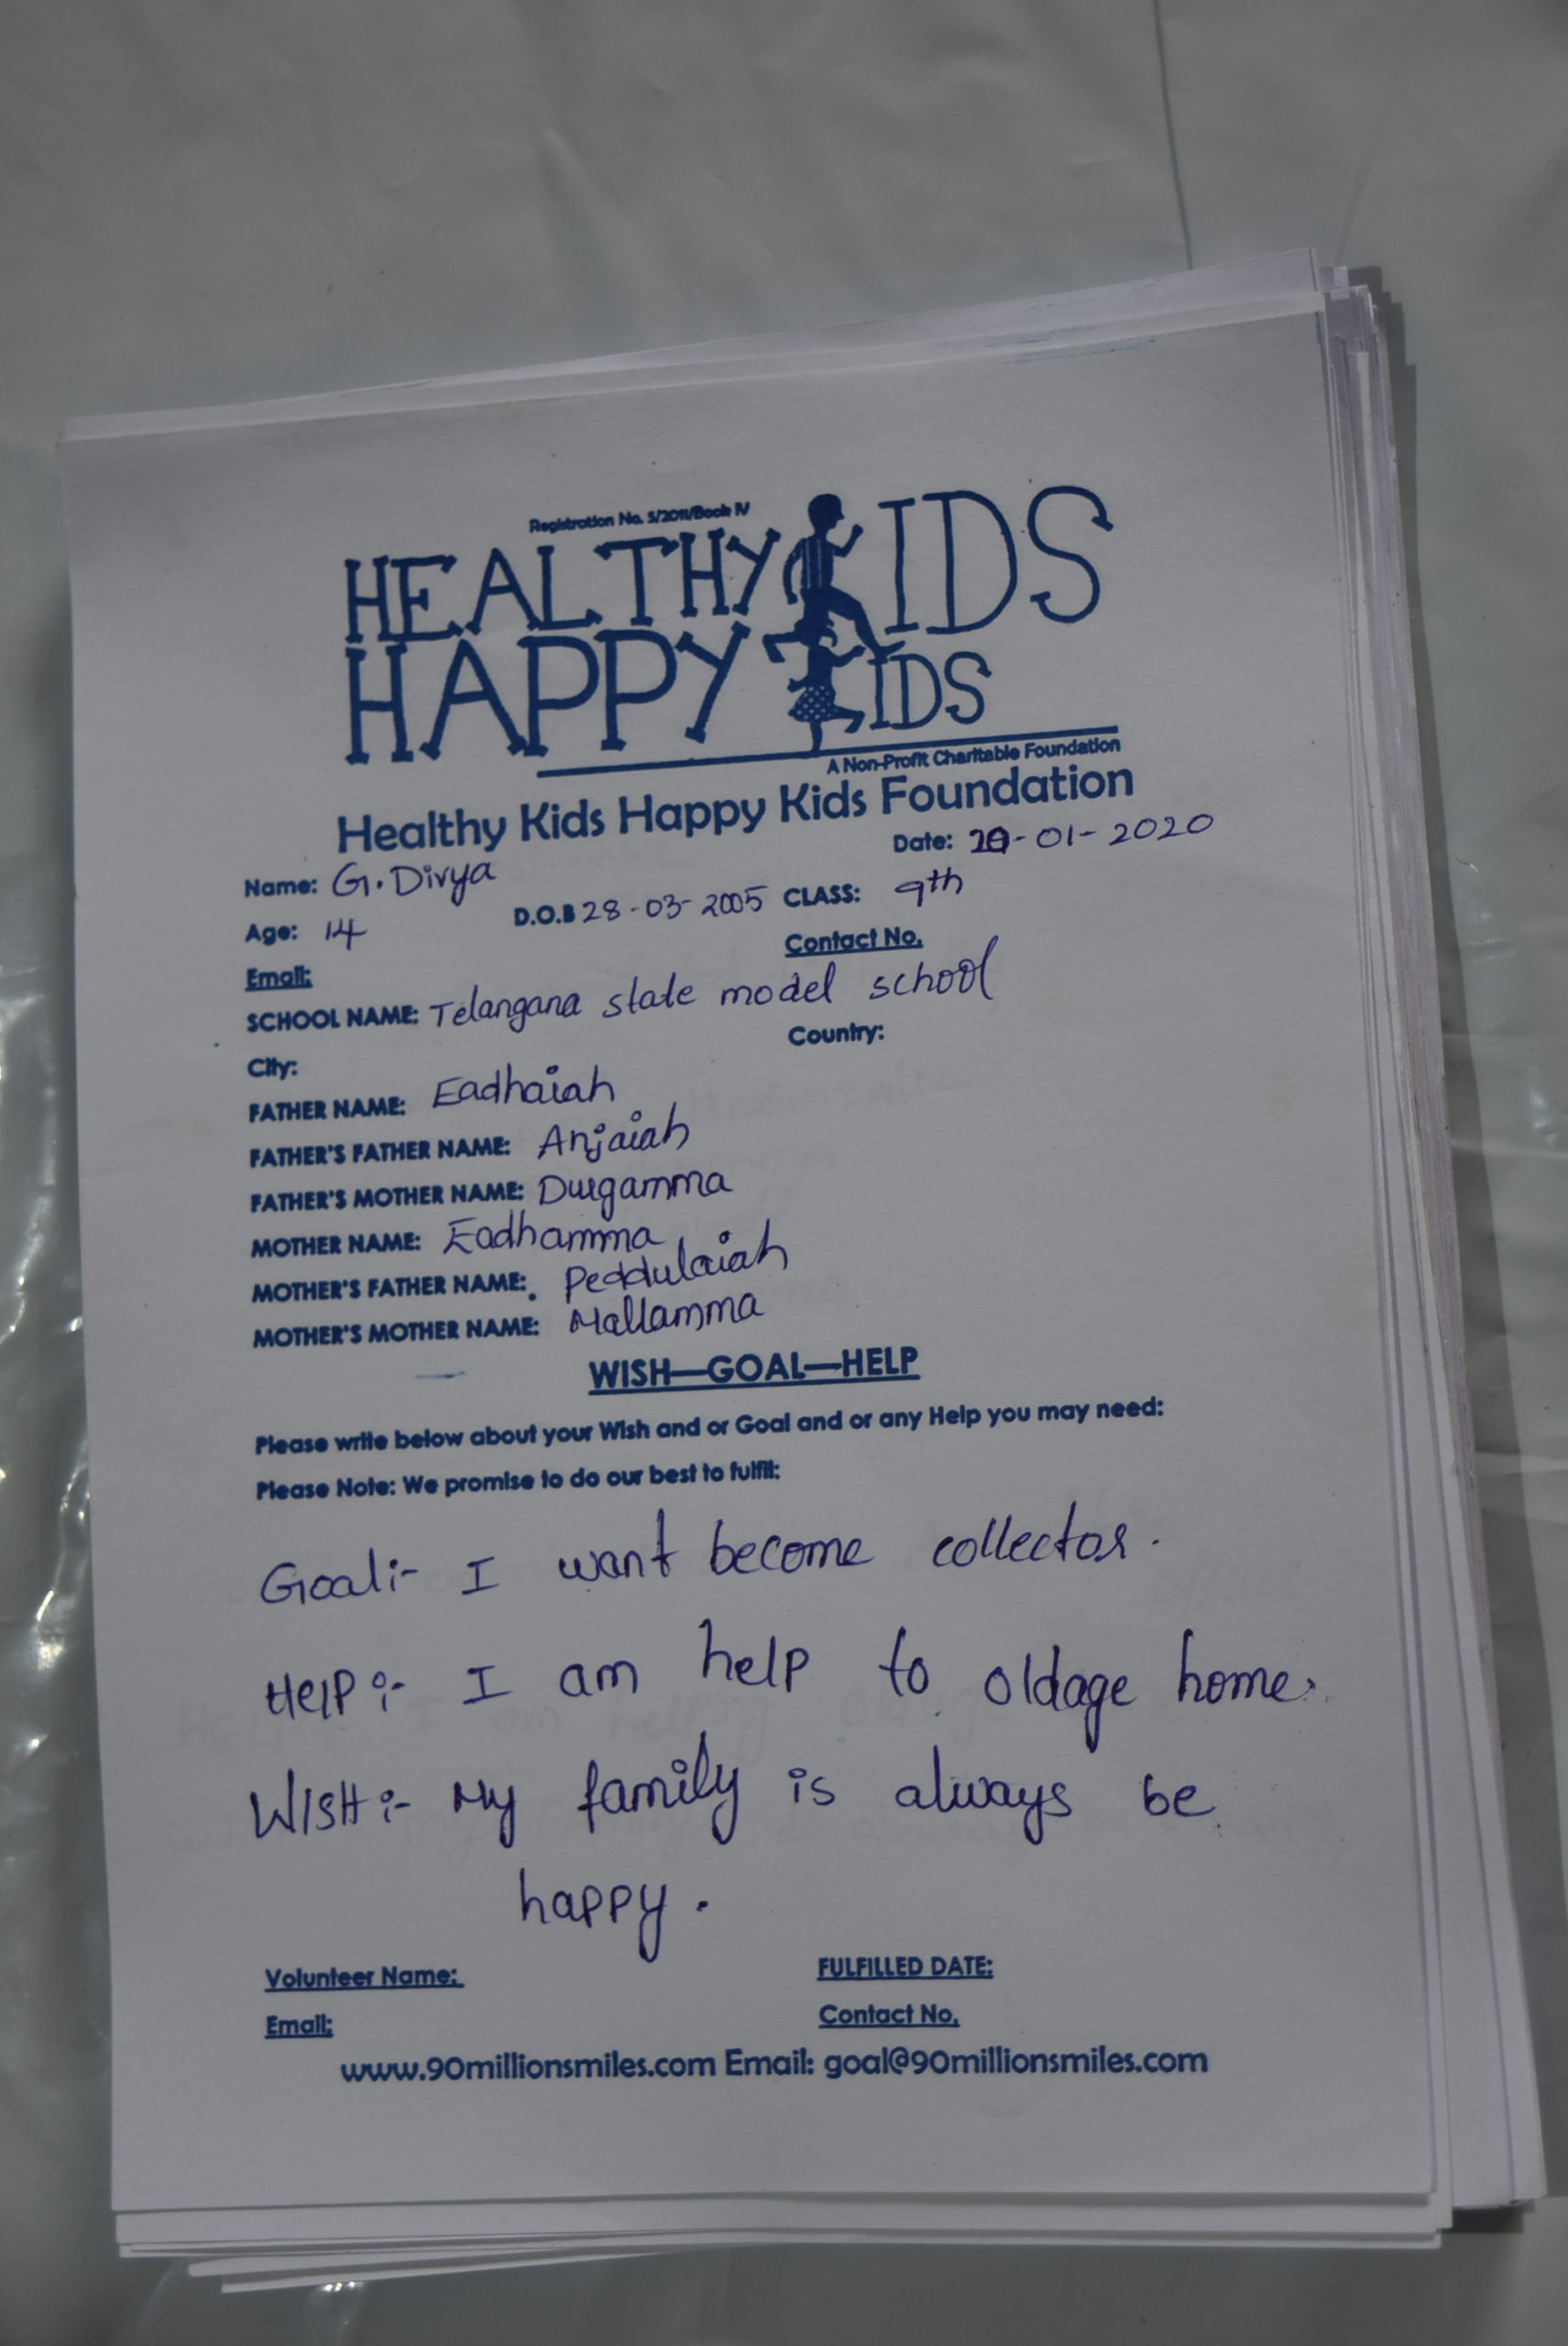 Registration No. 5/2011/Book IV
HEALTHY KIDS
HAPPY KIDS
A Non-Profit Charitable Foundation
Healthy Kids Happy Kids Foundation
Date: 20-01-2020
Name: G. Divya
Age: 14 D.O.B 28-03-2005 CLASS: 9th
Email: Contact No.
SCHOOL NAME: Telangana state model school
City: Country:
FATHER NAME: Eadhaiah
FATHER'S FATHER NAME: Anjaiah
FATHER'S MOTHER NAME: Durgamma
MOTHER NAME: Eadhamma
MOTHER'S FATHER NAME: Peddulaiah
MOTHER'S MOTHER NAME: Mallamma
WISH—GOAL—HELP
Please write below about your Wish and or Goal and or any Help you may need:
Please Note: We promise to do our best to fulfil:
Goal:- I want become collector.
Help:- I am help to oldage home.
WISH:- My family is always be
happy.
Volunteer Name: FULFILLED DATE:
Email: Contact No.
www.90millionsmiles.com Email: goal@90millionsmiles.com